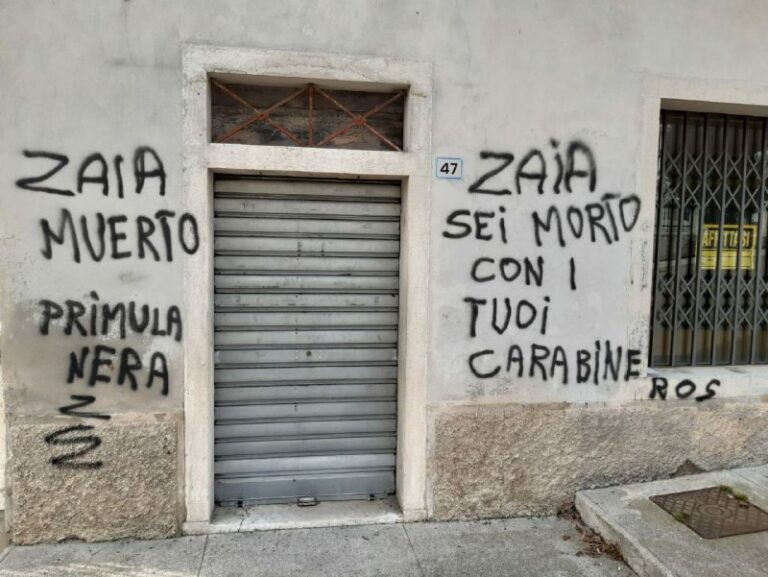 ZAIA
MUERTO
PRIMULA
NERA
47
ZAiA
SEi MORTO
CON I
TUOi
CARABINE
ROS
AFFITTASI